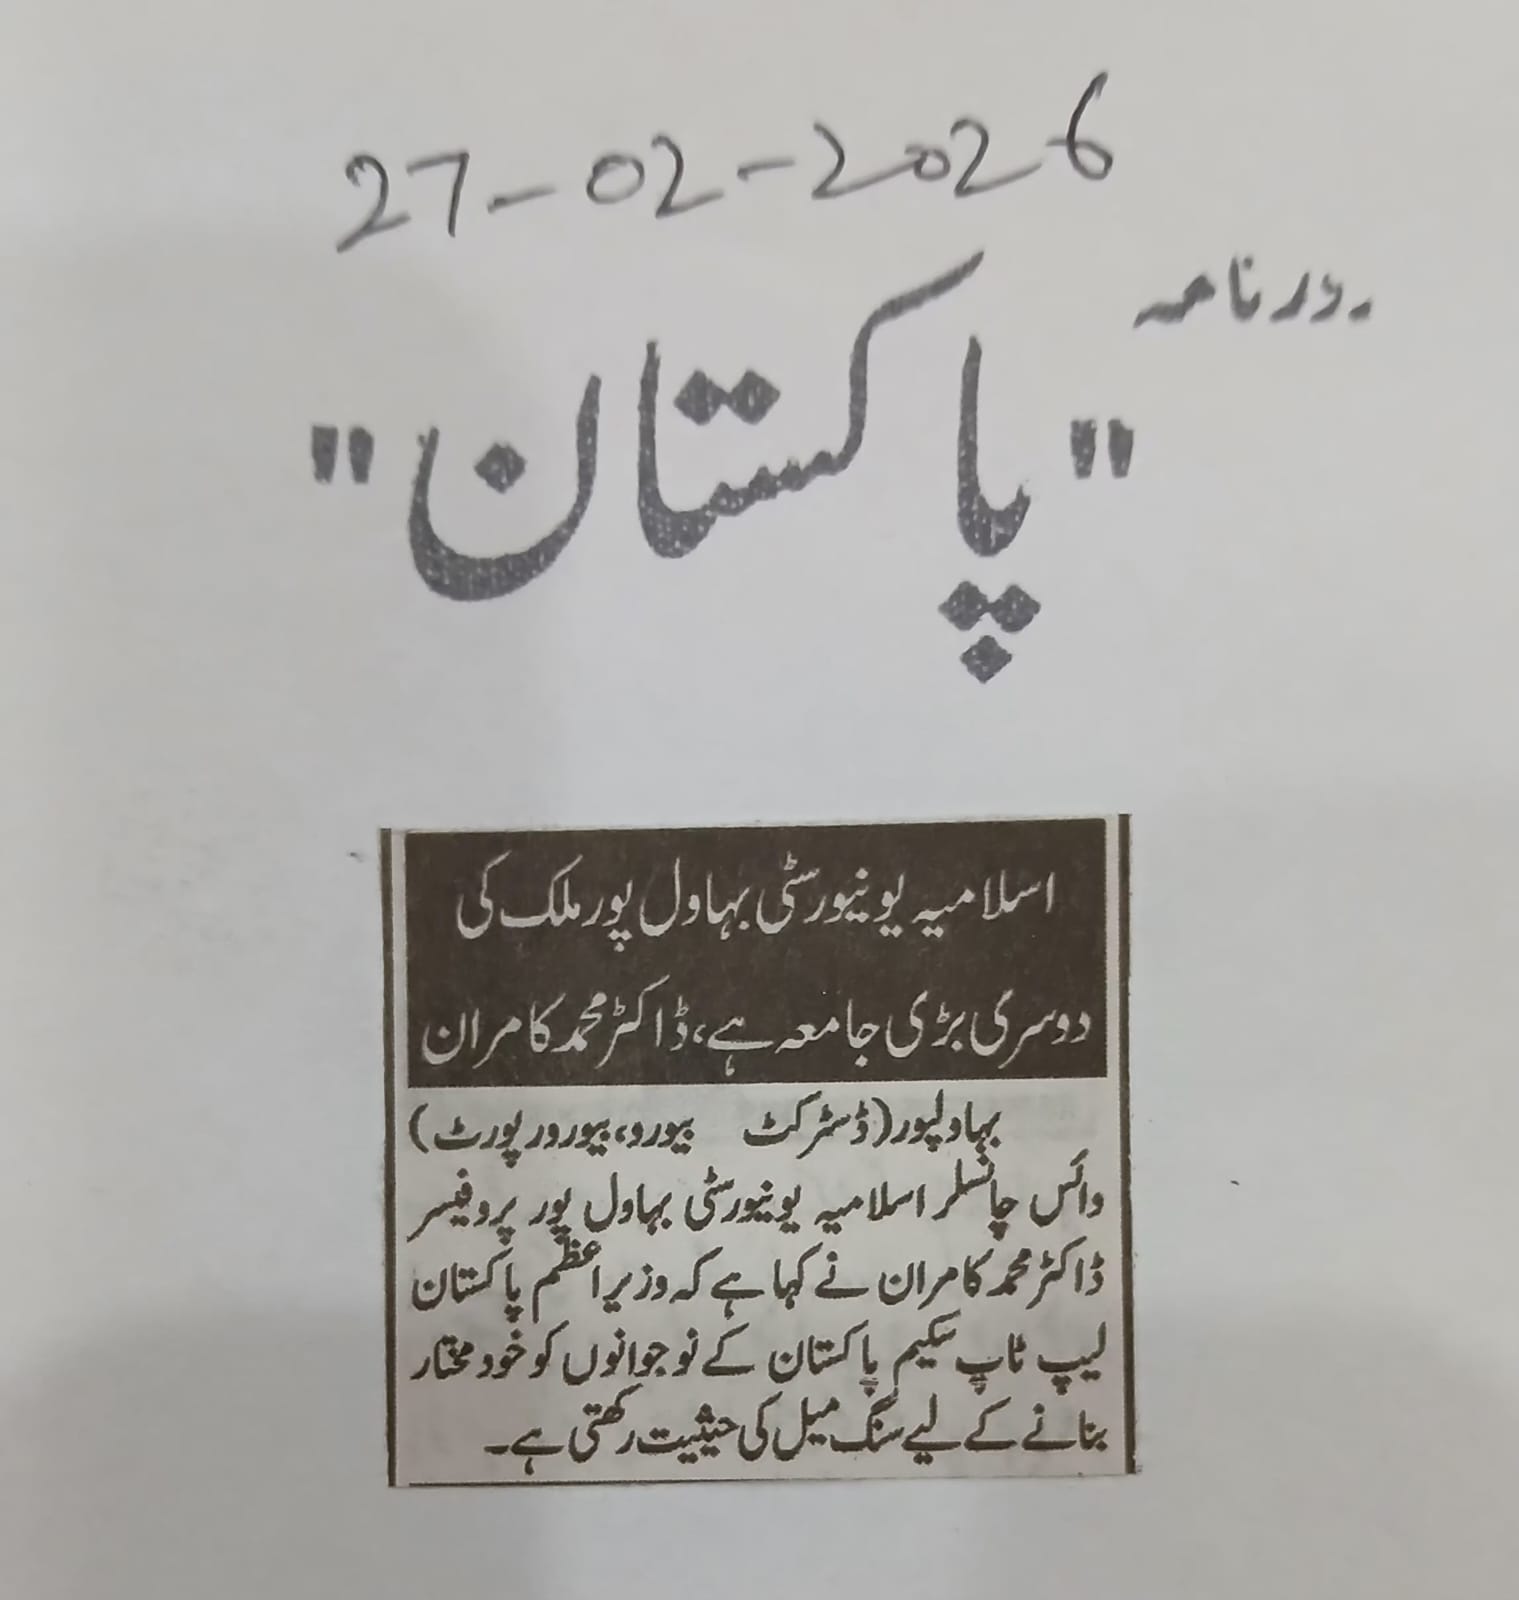 27-02-2026
روزنامہ
"پاکستان"
اسلامیہ یونیورسٹی بہاول پور ملک کی
دوسری بڑی جامعہ ہے، ڈاکٹر محمد کامران
بہاولپور (ڈسٹرکٹ بیورو، بیورورپورٹ)
وائس چانسلر اسلامیہ یونیورسٹی بہاول پور پروفیسر
ڈاکٹر محمد کامران نے کہا ہے کہ وزیر اعظم پاکستان
لیپ ٹاپ سکیم پاکستان کے نوجوانوں کو خود مختار
بنانے کے لیے سنگ میل کی حیثیت رکھتی ہے۔